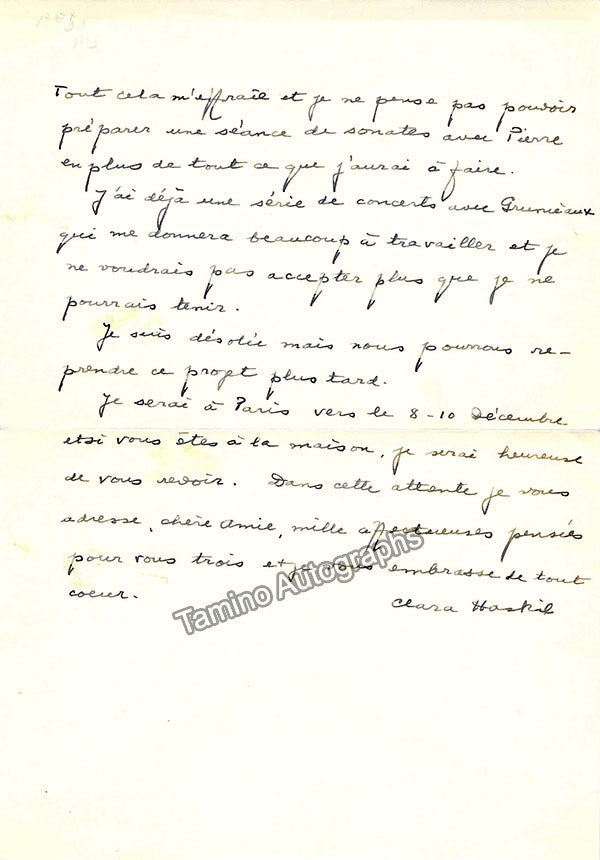 Tout cela m'effraie et je ne pense pas pouvoir
préparer une séance de sonates avec Pierre
en plus de tout ce que j'aurai à faire.
J'ai déjà une série de concerts avec Grumieaux
qui me donnera beaucoup à travailler et je
ne voudrais pas accepter plus que je ne
pourrais tenir.
Je suis désolée mais nous pourrons re-
prendre ce projet plus tard.
Je serai à Paris vers le 8-10 Décembre
et si vous êtes à la maison, je serai heureuse
de vous revoir. Dans cette attente je vous
adresse, chère Amie, mille affectueuses pensées
pour vous trois et je vous embrasse de tout
coeur.
Clara Haskil
Tamino Autographs